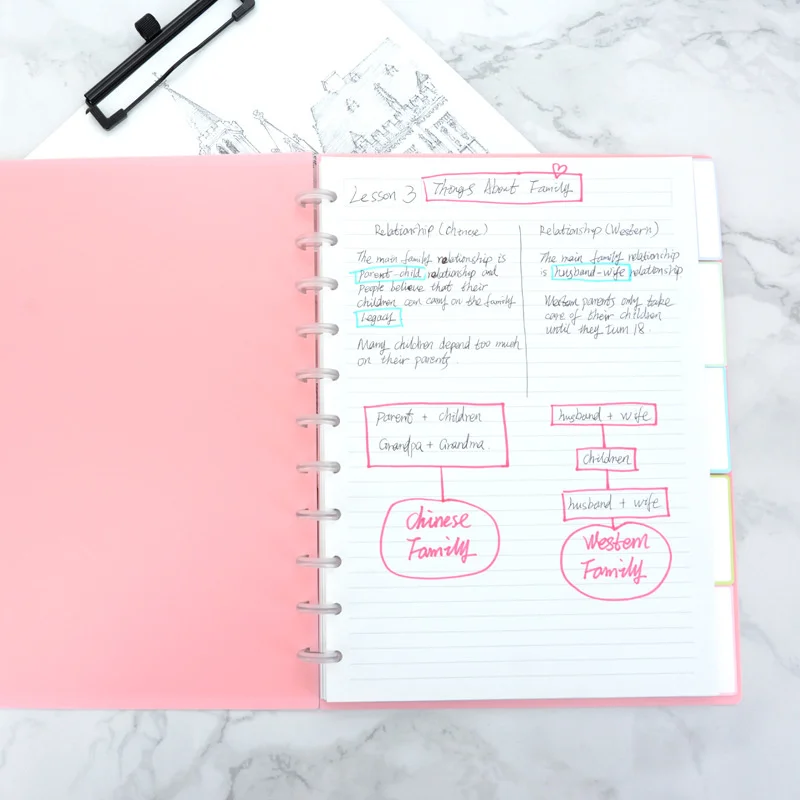 Lesson 3 Things About Family
Relationship (Chinese)
The main family relationship is
parent-child relationship and
people believe that their
children can carry on the family
legacy
Many children depend too much
on their parents.
Relationship (Western)
The main family relationship
is husband-wife relationship
Western parents only take
care of their children
until they turn 18.
Parent + children
Grandpa + Grandma
Chinese
Family
husband + wife
children
husband + wife
Western
Family